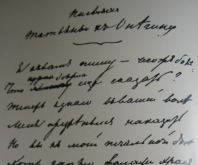 Письмо
Татьяны къ Онѣгину
Я къ вамъ пишу — чего же боле
Что еще сказать?
Теперь я знаю въ вашей волѣ
Меня презрѣньемъ наказать
Но вы къ моей печальной долѣ
Хоть каплю жалости храня